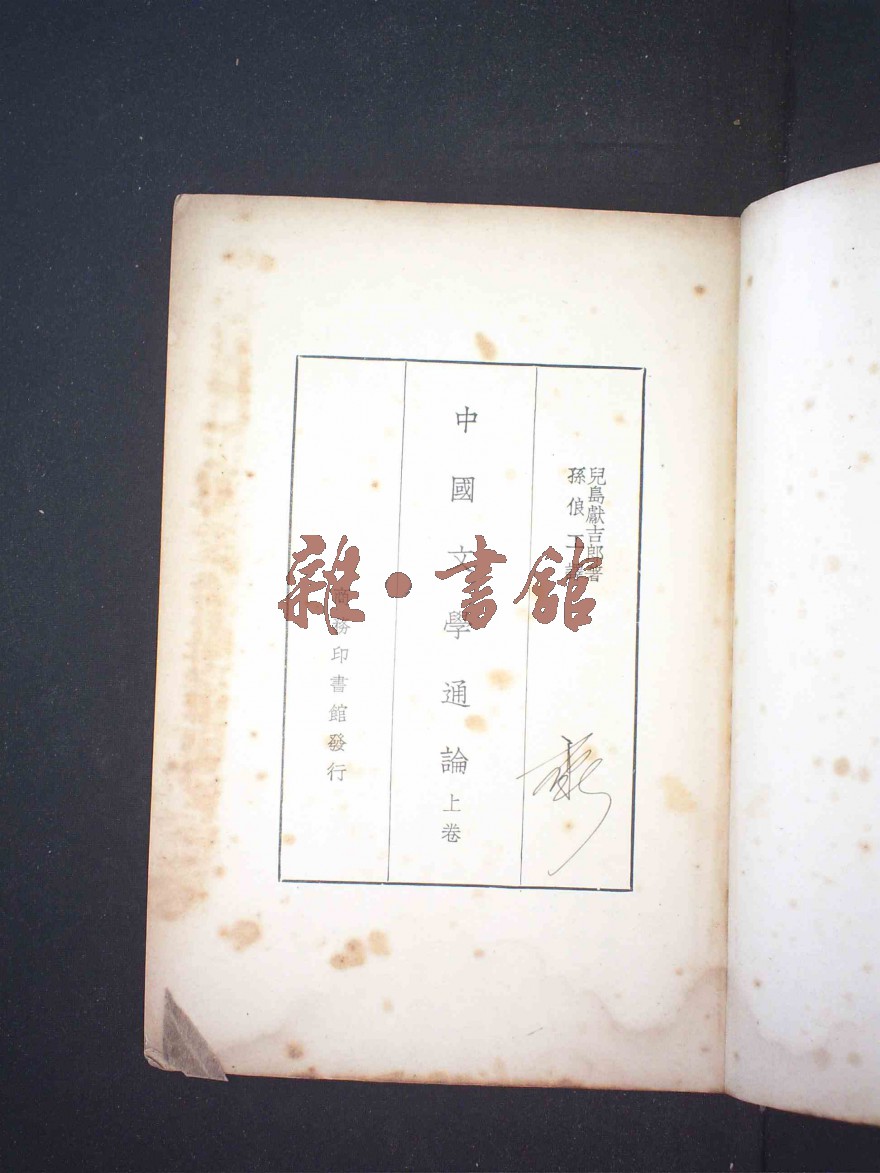 兒島獻吉郎著
孫俍工譯
中國文學通論上卷
商務印書館發行
雜·書館